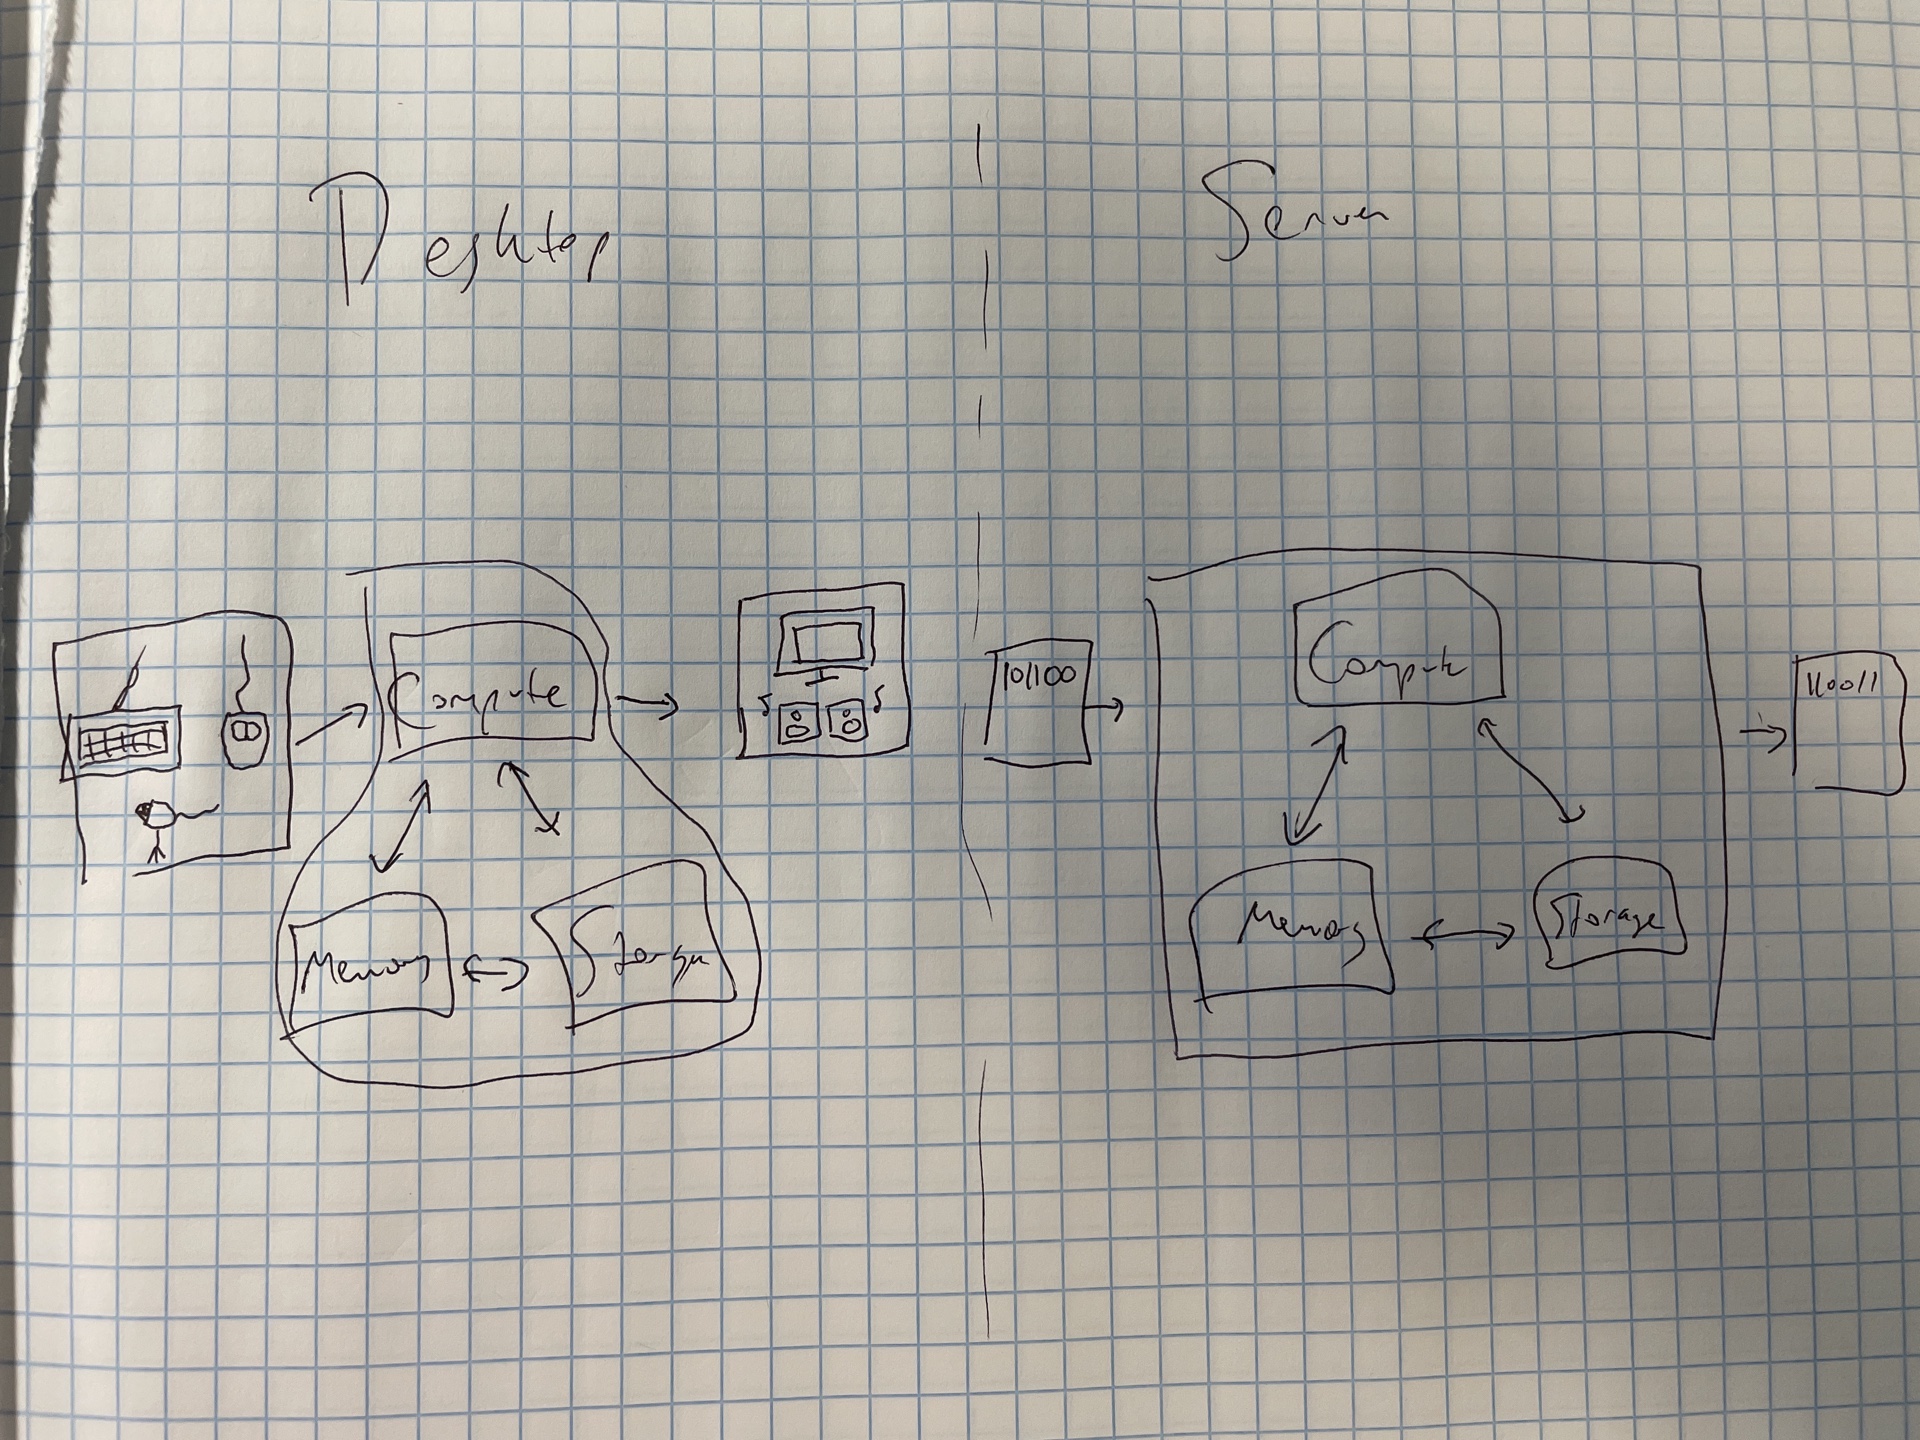 Desktop
Server
Compute
Memory
Storage
101100
Compute
Memory
Storage
110011